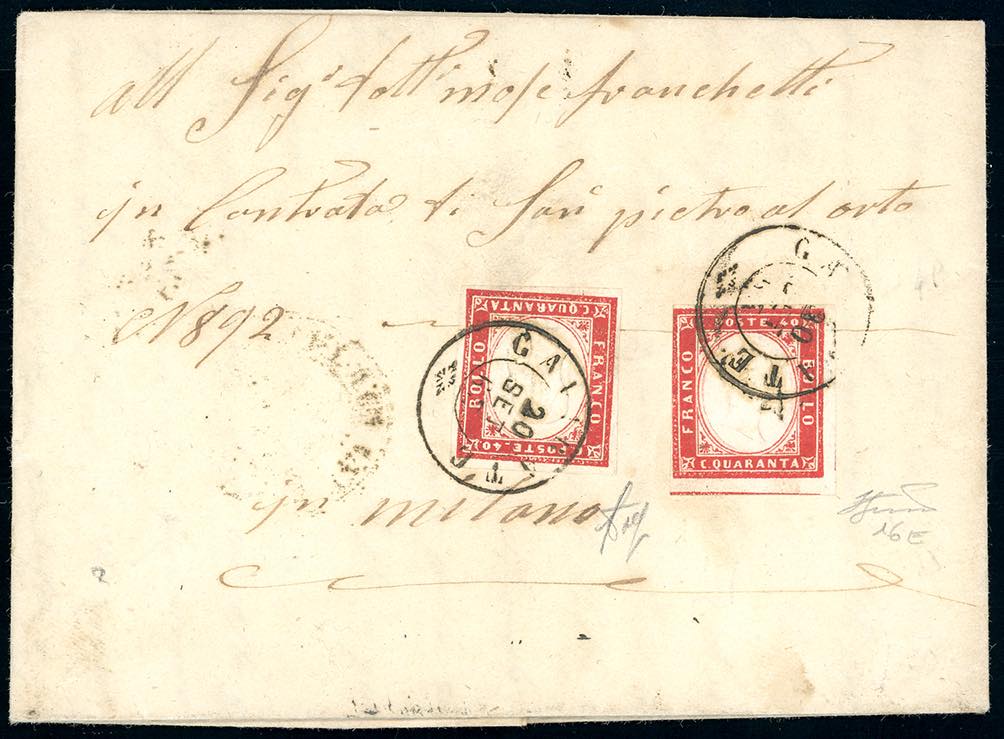 All Sig.r dott. mose franchetti
in Contrada di San pietro al orto
N 892
in milano
C. QUARANTA
BOLLO
FRANCO
POSTE. 40
POSTE. 40
FRANCO
BOLLO
C. QUARANTA
20
SET
16 E